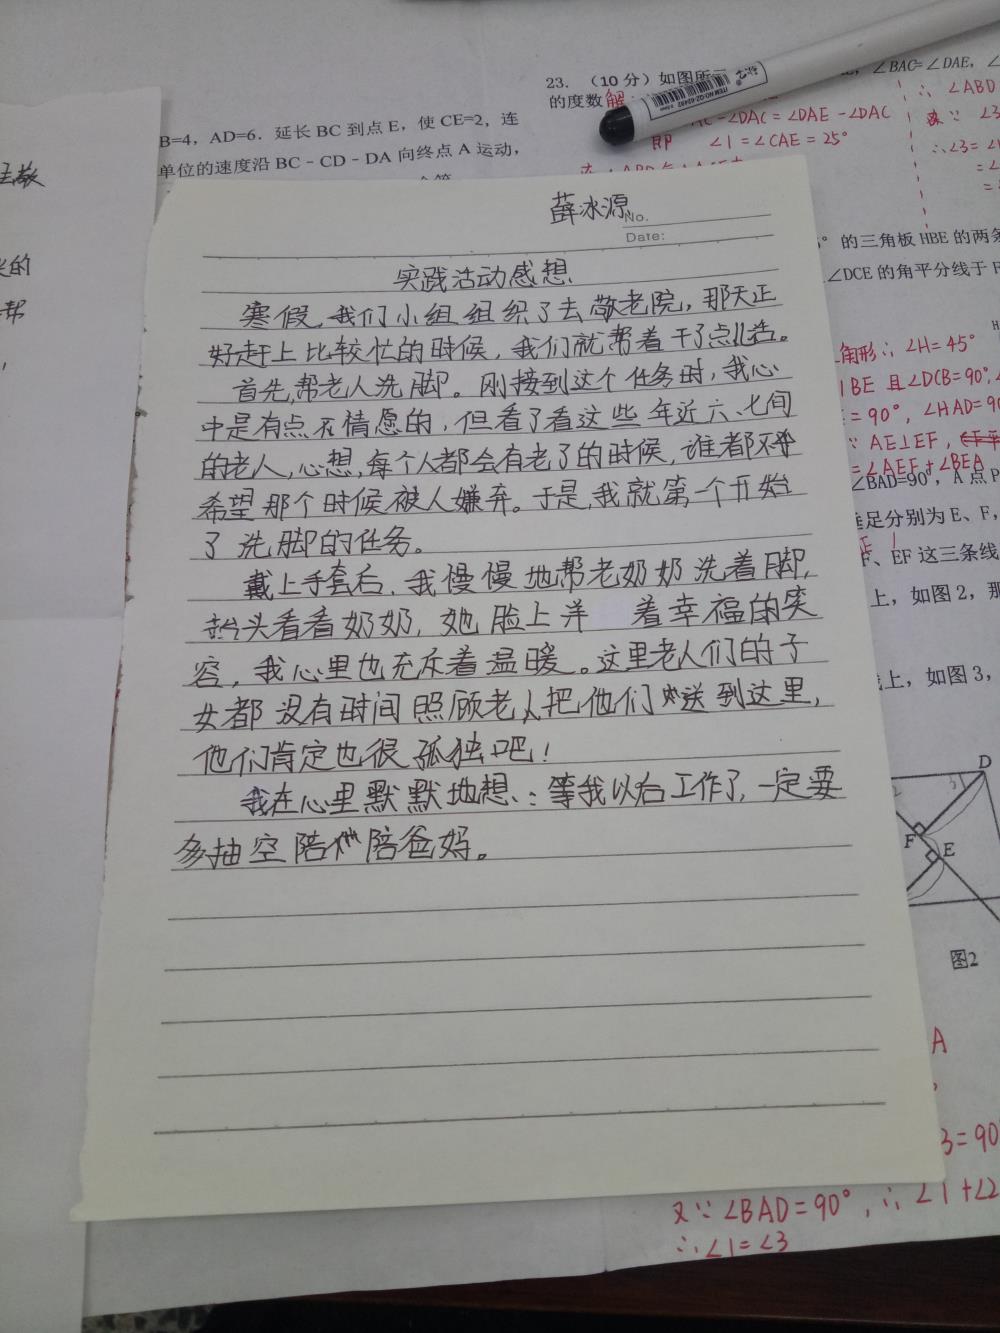 薛冰源
No.
Date:
实践活动感想
寒假,我们小组组织了去敬老院,那天正
好赶上比较忙的时候,我们就帮着干了点儿活。
首先,帮老人洗脚。刚接到这个任务时,我心
中是有点不情愿的,但看了看这些年近六、七旬
的老人,心想,每个人都会有老了的时候,谁都不
希望那个时候被人嫌弃。于是,我就第一个开始
了洗脚的任务。
戴上手套后,我慢慢地帮老奶奶洗着脚,
抬头看看奶奶,她脸上洋 着幸福的笑
容,我心里也充斥着温暖。这里老人们的子
女都没有时间照顾老人把他们送到这里,
他们肯定也很孤独吧!
我在心里默默地想:等我以后工作了,一定要
多抽空陪陪爸妈。
B=4,AD=6.延长BC到点E,使CE=2,连
单位的速度沿BC-CD-DA向终点A运动,
23.(10分)如图所
∠BAC=∠DAE,∠
的度数
解
-∠DAC=∠DAE-∠DAC
即 ∠1=∠CAE=25°
∴ ∠ABD
∴∠3=∠
的三角板HBE的两条
∠DCE的角平分线于F
角形∴∠H=45°
BE且∠DCB=90°,
=90°,∠HAD=90
∵AE⊥EF,
=∠AEF+∠BEA
∠BAD=90°,A点P
垂足分别为E、F,
F、EF这三条线
上,如图2,那
上,如图3,
D
F
E
图2
A
3=90
又∵∠BAD=90°,∴∠1+∠2
∴∠1=∠3
的
帮